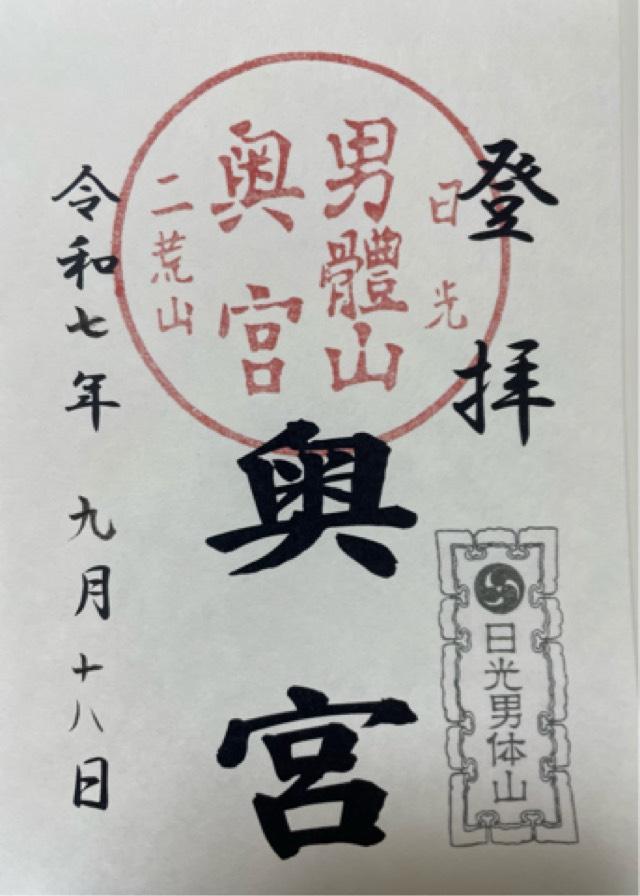 登拝
日光
男體山
奥宮
二荒山
奥宮
日光男体山
令和七年 九月十八日